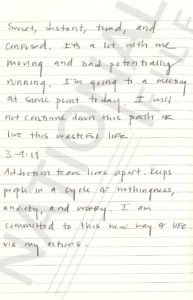 Sweet, distant, tired, and
confused. Its a lot with me
moving and Dad potentially
running. I'm going to a meeting
at some point today. I will
not continue down this path or
live this wasteful life.
3-9-19
Addiction tears lives apart. Keeps
people in a cycle of nothingness,
anxiety, and worry. I am
committed to this new way of life
via my actions.
NATIONAL